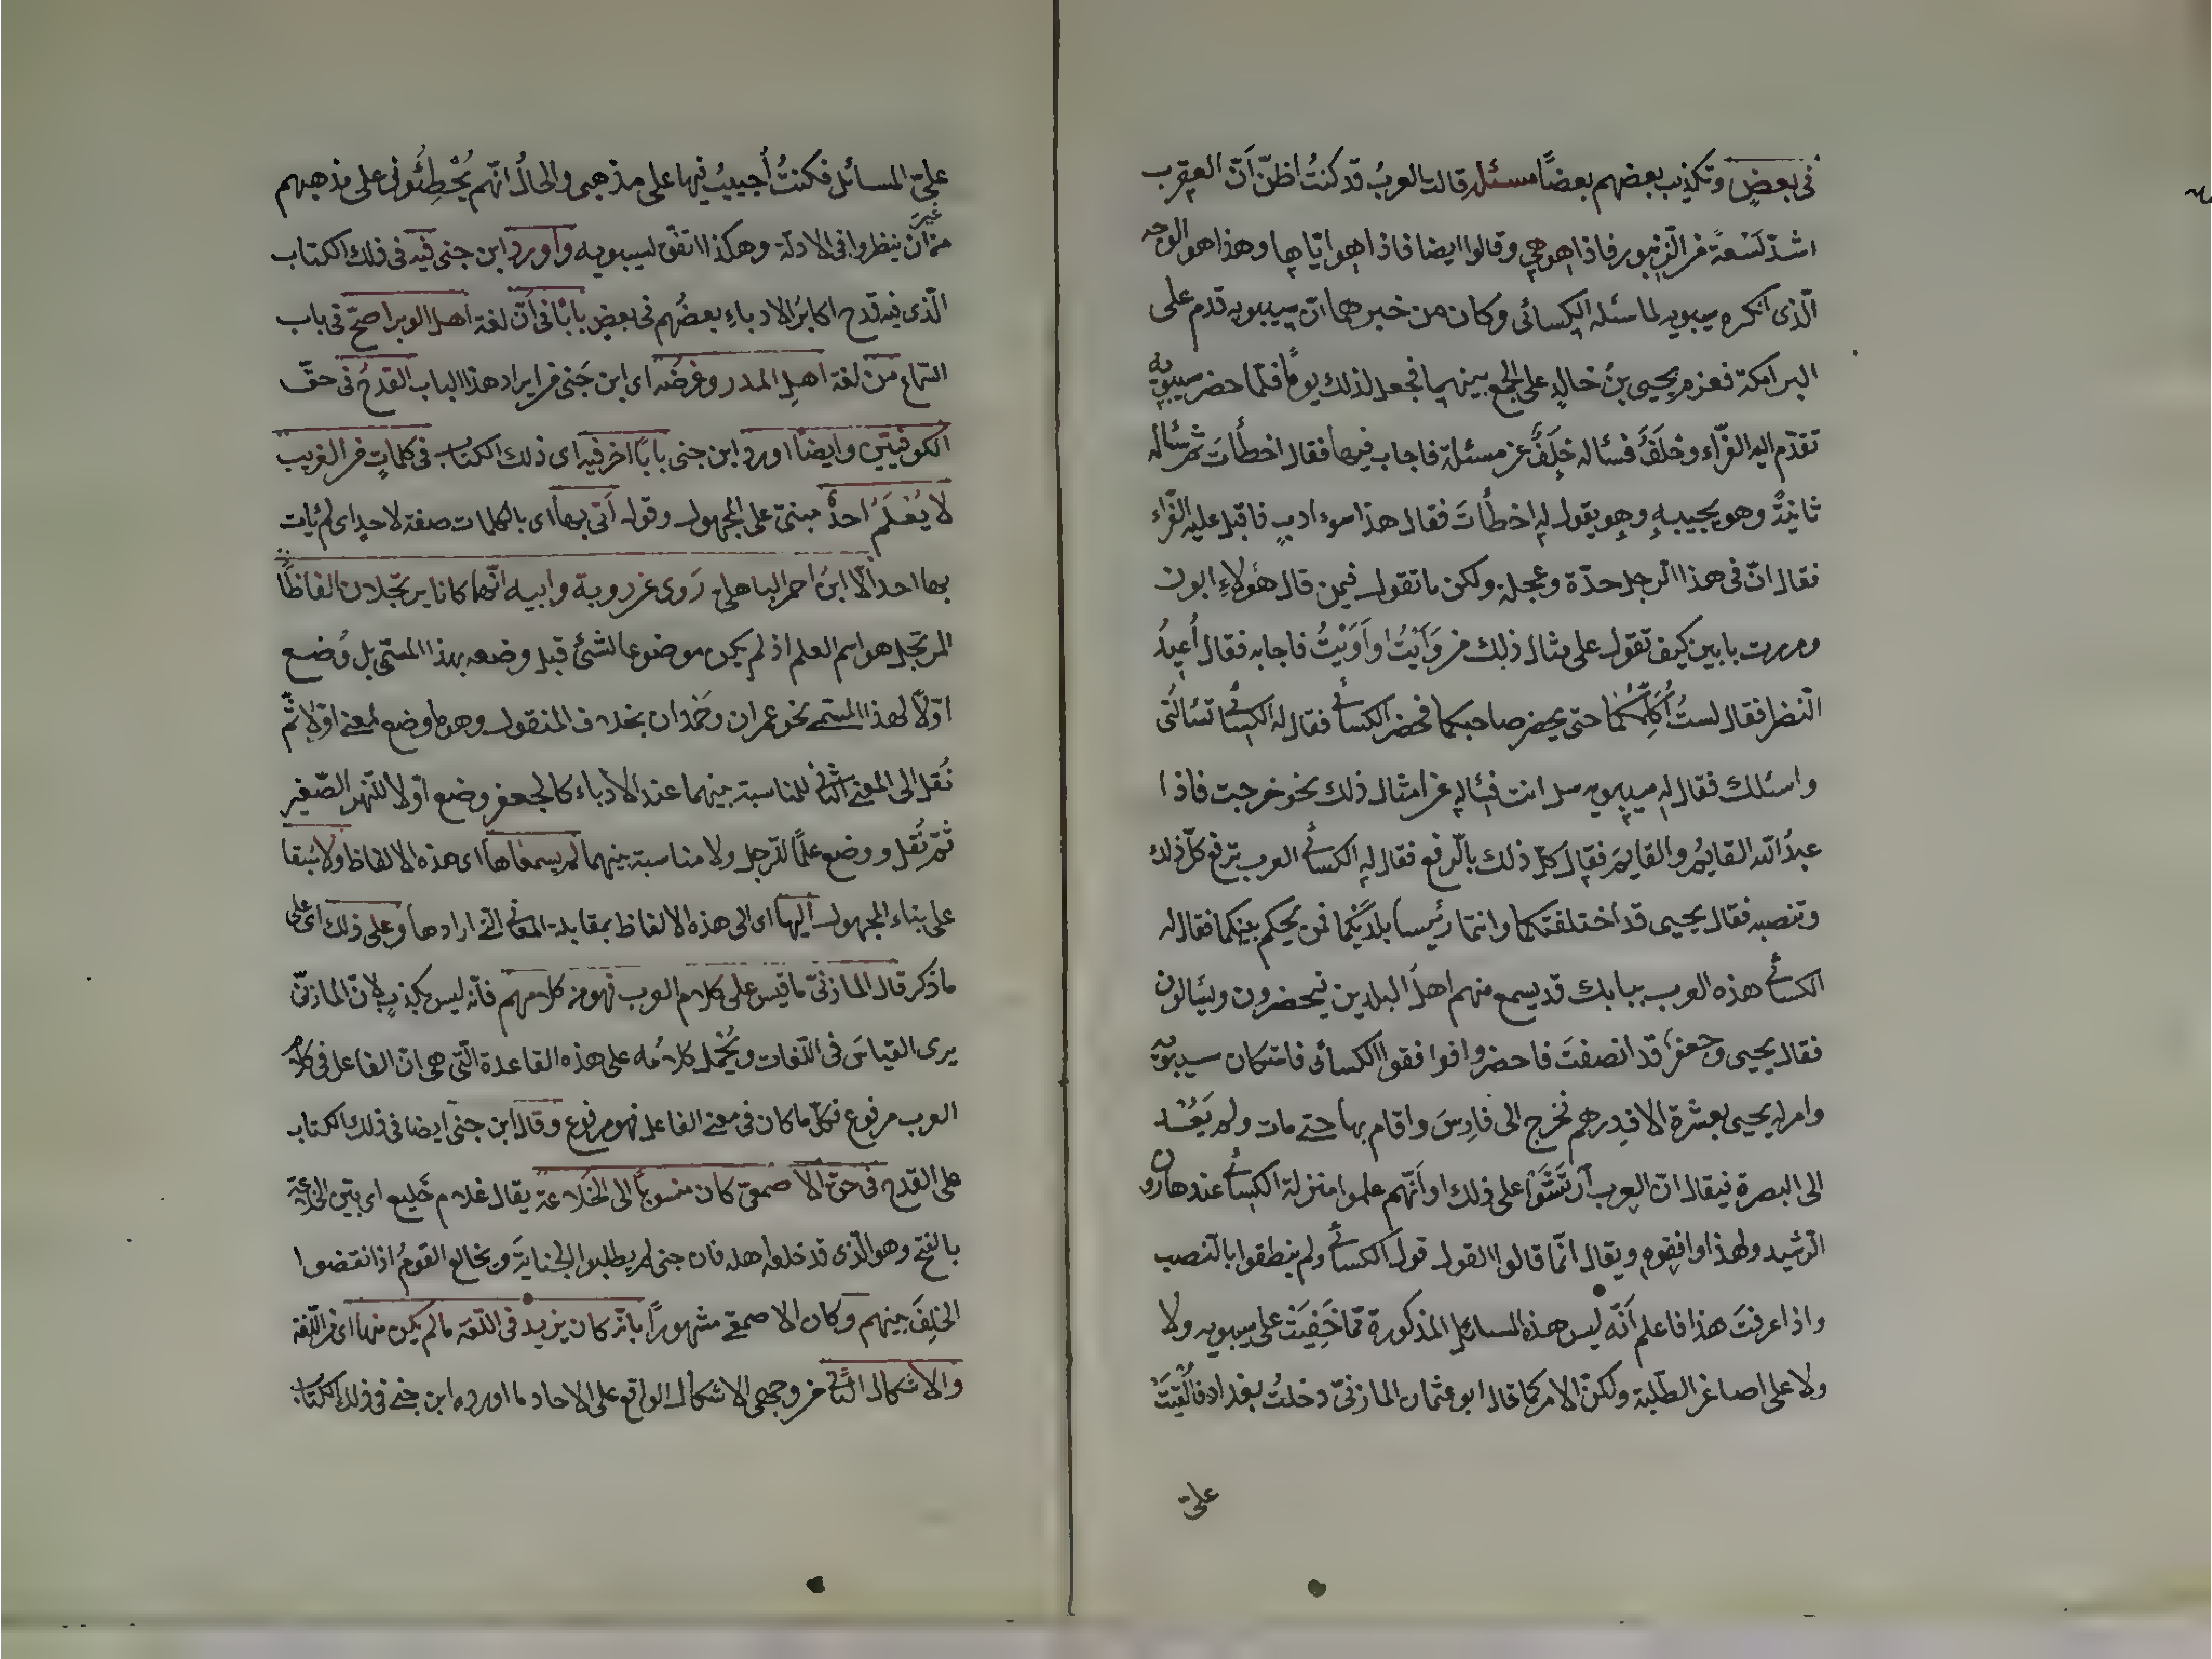 فى بعضٍ وتكذيب بعضهم بعضاً مسئله قالت العربُ قد كنتُ اظنّ اَنّ العقرب
اشدّ لَسْعةً من الزنبور فاذا هو هى وقالوا ايضا فاذا هو ايّاها وهذا هو الوجه
الّذى انكره سيبويه لما سئله الكسائى وكان من خبرهما انّ سيبويه قدم على
البرامكة فعزم يحيى بنُ خالدٍ على الجمع بينهما فجعل لذلك يوماً فلمّا حضر سيبويه
تقدّم اليه الفرّاء وخلَفٌ فسئاله خلَفٌ عن مسئلة فاجاب فيها فقال اخطأتَ ثمّ سئاله
ثانيةً وهو يجيبهِ وهو يقول له اخطأتَ فقال هذا سوء ادبٍ فاقبل عليه الفرّاء
فقال انّ فى هذا الرجل حدّة وعجلة ولكن ما تقول فيمن قال هؤلاءِ ابون
ومررت بابين كيف تقول على مثال ذلك من وَاَيْتُ واَوَيْتُ فاجابه فقال اُعِيدُ
النظر فقال لستُ اُكلّمكما حتى يحضر صاحبكما فحضر الكسائى فقال له الكسائى تسئالنى
واسئلك فقال له سيبويه سل انت فسئاله عن امثال ذلك نحو خرجت فاذا
عبدُ الله القايمُ والقايمَ فقال كلّ ذلك بالرفع فقال له الكسائى العرب ترفع كلّ ذلك
وتنصبه فقال يحيى قد اختلفتما وانتما رئيسا بلدَيْكما فمن يحكم بينكما فقال له
الكسائى هذه العرب ببابك قد يسمع منهم اهلُ البلدين فيحضرون ويسئالون
فقال يحيى وجعفرٌ قد انصفتَ فاحضروا فوافقوا الكسائى فاستكان سيبويه
وامر له يحيى بعشرة الاف درهم فخرج الى فارسَ واقام بها حتى مات ولم يَعُدْ
الى البصرة فيقال انّ العرب اَرْتَشَوْا على ذلك او اَنّهم علموا منزلة الكسائى عند هارون
الرشيد ولهذا وافقوه ويقال انّما قالوا القول قول الكسائى ولم ينطقوا بالنصب
واذا عرفتَ هذا فاعلم اَنّه ليس هذه المسائل المذكورة ممّا خَفِيَتْ على سيبويه ولا
ولا على اصاغر الطلبة ولكنّ الامر كما قال ابو عثمان المازنىّ دخلتُ بغداد فاُلْقِيَتْ
علىّ
علىّ المسائل فكنتُ اُجيبُ فيها على مذهبى والحالُ انّهم يُخْطِئُونى على مذهبهم
من غير اَن ينظروا فى الادلّة وهكذا اتفق لسيبويه واورد ابن جنى فيه فى ذلك الكتاب
الّذى فيه قدح اكابرُ الادباءِ بعضُهم فى بعضٍ باباً فى اَنّ لغة اهل الوبر اصحّ فى باب
السّماع من لغة اهلِ المدر وغرضُه اى ابن جنى من ايراد هذا الباب القدحُ فى حقّ
الكوفيّين وايضاً اورد ابن جنى باباً اخر فيه اى ذلك الكتاب فى كلماتٍ من الغريب
لا يُعْلَمُ احدٌ مبنىّ على المجهول وقوله اَتى بها اى بالكلمات صفة لاحدٍ اى لم يأت
بها احد الّا ابنُ احمر الباهلى رَوى عن روبة وابيه انّهما كانا يرتجلان الفاظاً
المرتجل هو اسم العلم اذ لم يكن موضوعا لشئ قبل وضعه بهذا المسمّى بل وُضع
اوّلاً لهذا المسمّى نحو عمران وحَمْدان بخلاف المنقول وهو ما وضع لمعنى اوّلا ثمّ
نُقل الى المعنى الثانى للمناسبة بينهما عند الادباء كالجعفر وضع اوّلا للنهر الصّغير
ثمّ نُقل ووضع علَمًا لرجل ولا مناسبة بينهما لم يسمعاها اى هذه الالفاظ ولا سُبِقا
على بناء المجهول اليها اى الى هذه الالفاظ بمقابلة المعانى الّتى ارادها وعلى ذلك اى على
ما ذكر قال المازنىّ ما قيس على كلام العرب فهو من كلامهم فانّه ليس بكذبٍ لانّ المازنىّ
يرى القياسَ فى اللّغات ويُحْمل كلامُه على هذه القاعدة الّتى هى انّ الفاعل فى كلام
العرب مرفوع فكلّ ما كان فى معنى الفاعل فهو مرفوع وقال ابن جنىّ ايضا فى ذلك الكتاب
على القدح فى حقّ الاصمعىّ كان منسوباً الى الخَلاعة يقال غلام خَليع اى بيّن الخلاعة
بالفتح وهو الّذى قد خلعه اهله فان جنى لم يطلبوا الجنايةَ وتخالع القومُ اذا نقضوا
الحَلِفَ بينهم وكان الاصمعى مشهوراً بانّه كان يزيد فى اللّغة ما لم يكن منها اى من اللّغة
والاشكال الثّانى من وجهى الاشكال الواقع على الاحاد ما اورده ابن جنى فى ذلك الكتاب